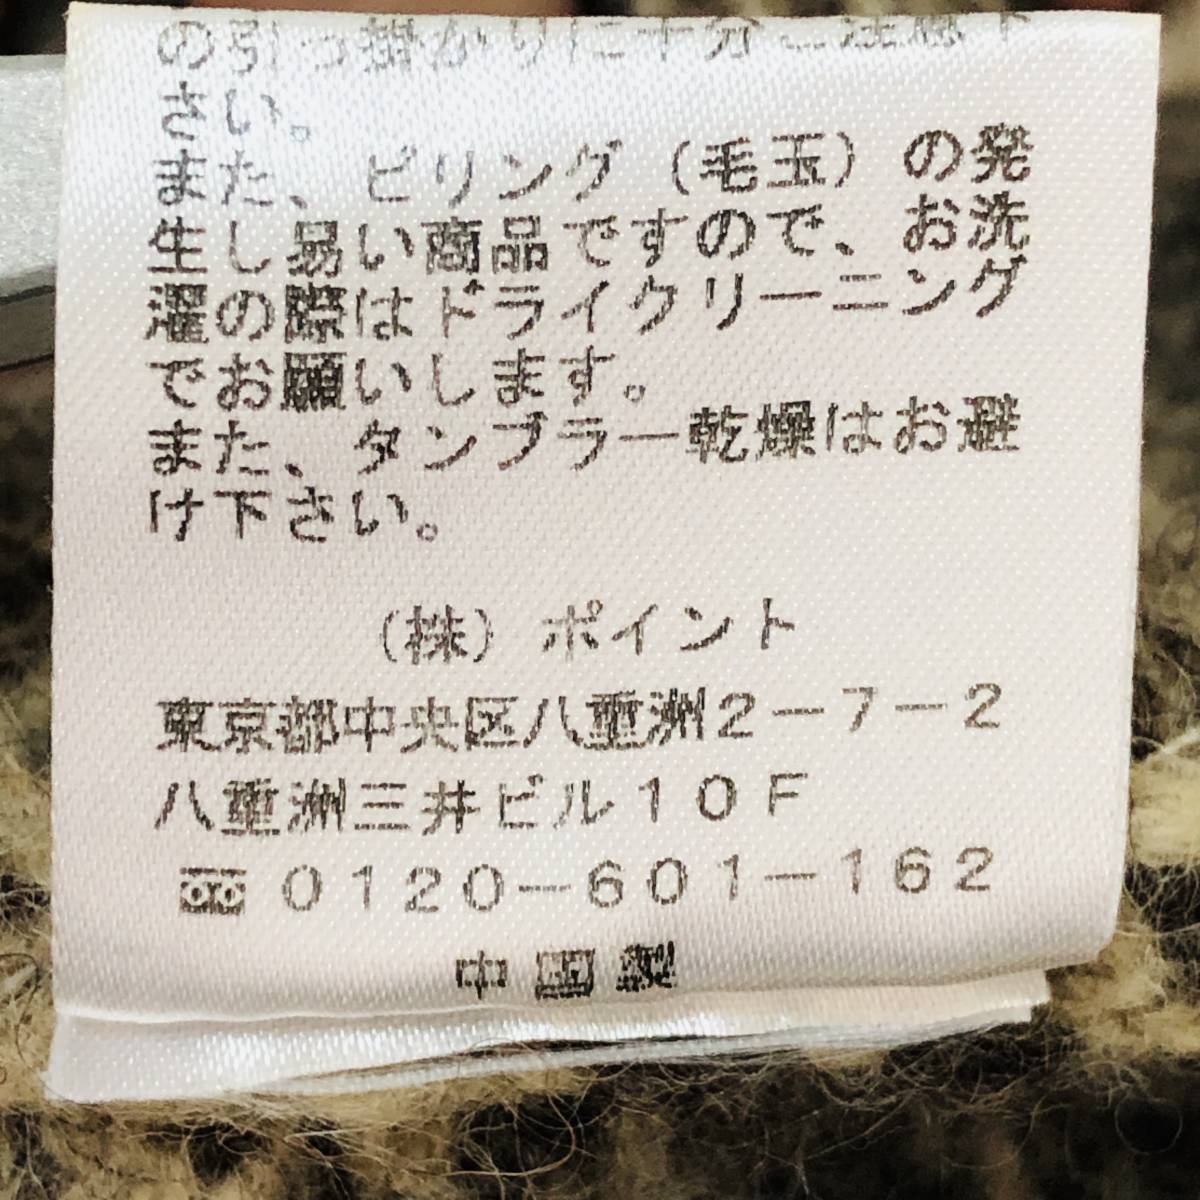 の引っ掛かりに十分ご注意下
さい。
また、ピリング（毛玉）の発
生し易い商品ですので、お洗
濯の際はドライクリーニング
でお願いします。
また、タンブラー乾燥はお避
け下さい。
（株）ポイント
東京都中央区八重洲2－7－2
八重洲三井ビル10F
0120－601－162
中国製